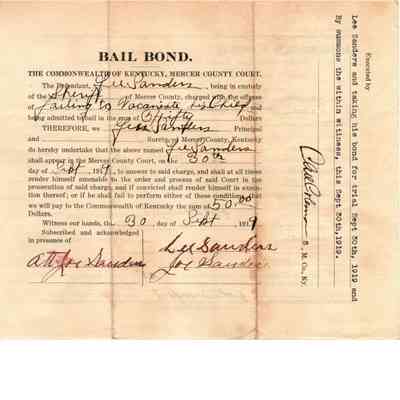 BAIL BOND.
THE COMMONWEALTH OF KENTUCKY, MERCER COUNTY COURT.
The Defendant, Lee Sanders, being in custody
of the Sheriff of Mercer County, charged with the offense
of failing to Vaccinate his Child and
being admitted to bail in the sum of Fifty Dollars
THEREFORE, we Sanders Principal
and Surety
do hereby undertake that the above named Lee Sanders
shall appear in the Mercer County Court, on the 30th
day of Sept 1919, to answer to said charge, and shall at all times
render himself amenable to the order and process of said Court in the
prosecution of said charge, and if convicted shall render himself in execu-
tion thereof; or if he shall fail to perform either of these conditions that
we will pay to the Commonwealth of Kentucky the sum of 50.00
Dollars.
Witness our hands, the 30 day of Sept 1919
Subscribed and acknowledged
in presence of
Lee Sanders
Att Joe Sanders
Joe Sanders
Executed by
Lee Sanders and taking his bond for trial Sept 30th, 1919 and
By summons the within witness, this Sept 30th, 1919.
S. M. Co., Ky.